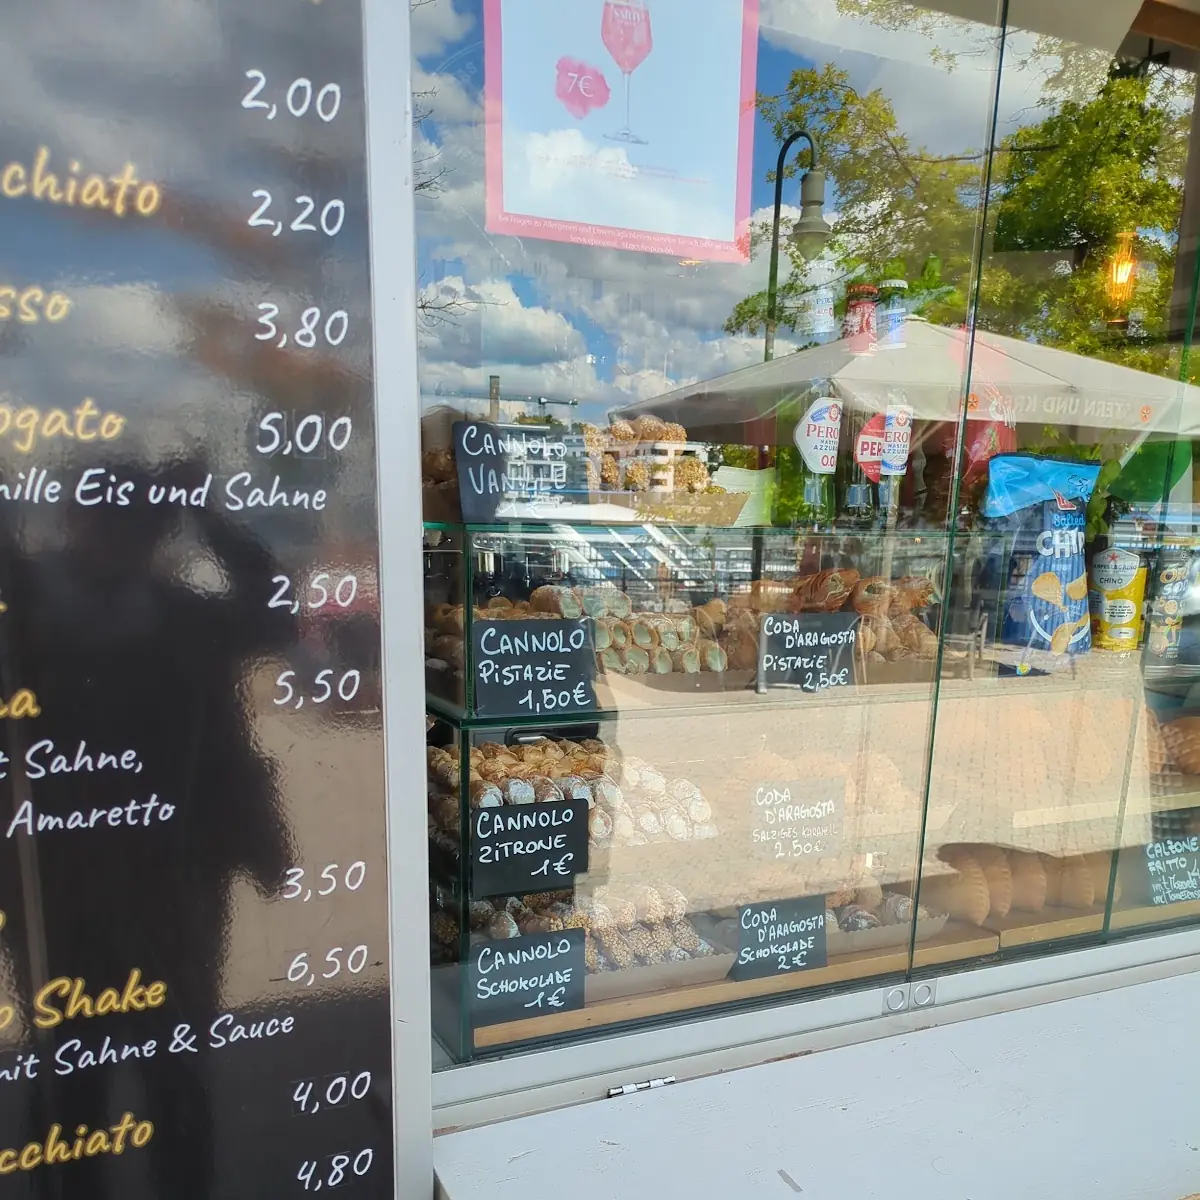 2,00
chiato
2,20
sso
3,80
ogato
5,00
nille Eis und Sahne
2,50
5,50
a
t Sahne,
Amaretto
3,50
6,50
o Shake
mit Sahne & Sauce
4,00
cchiato
4,80
7€
CANNOLO
VANILLE
1€
CANNOLO
PISTAZIE
1,50€
CODA
D'ARAGOSTA
PISTAZIE
2,50€
CANNOLO
ZITRONE
1€
CODA
D'ARAGOSTA
SALZIGES KARAMELL
2,50€
CANNOLO
SCHOKOLADE
1€
CODA
D'ARAGOSTA
SCHOKOLADE
2€
CALZONE
FRITTO
PERO
NASTRO
AZZURR
0.0
PER
ERON
NASTRO
AZZURR
Salted
CHIP
CHINO
STERN UND KRE